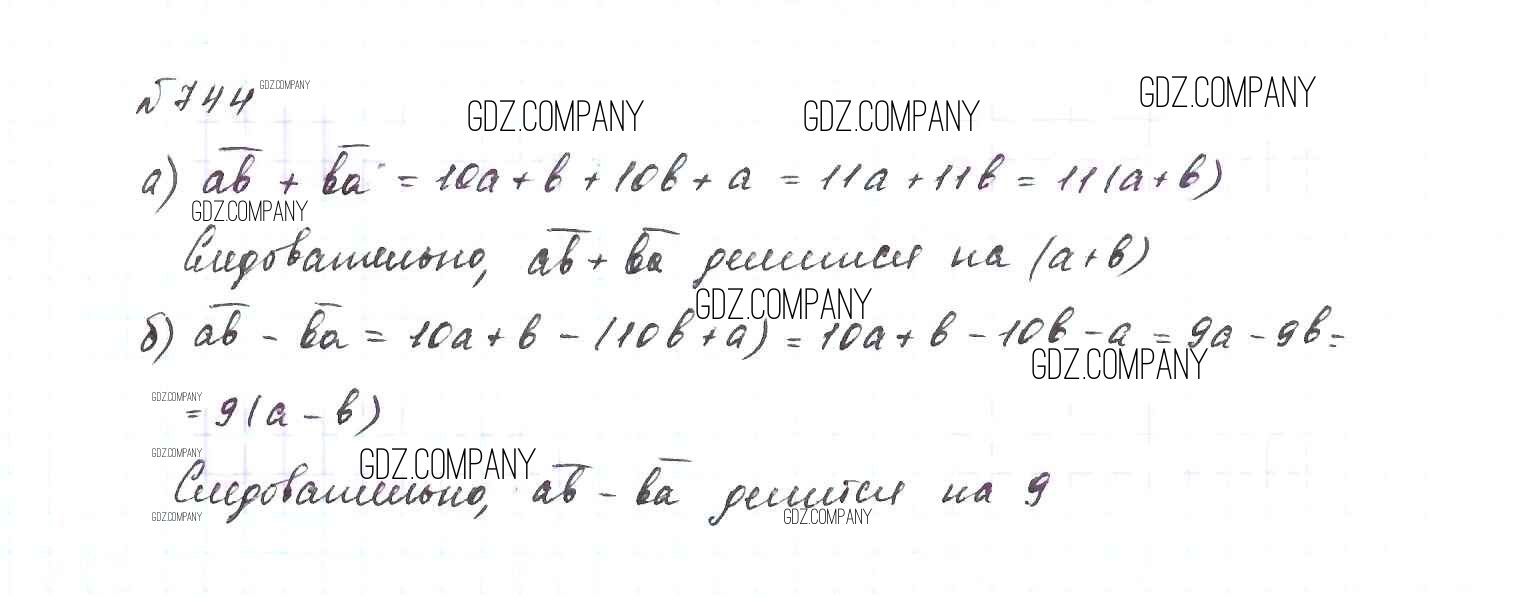 № 744 GDZ.COMPANY
GDZ.COMPANY GDZ.COMPANY GDZ.COMPANY
а) a̅b̅ + b̅a̅ = 10a + b + 10b + a = 11a + 11b = 11(a + b)
GDZ.COMPANY
Следовательно, a̅b̅ + b̅a̅ делится на (a + b)
GDZ.COMPANY
б) a̅b̅ - b̅a̅ = 10a + b - (10b + a) = 10a + b - 10b - a = 9a - 9b =
GDZ.COMPANY
GDZ.COMPANY
= 9(a - b)
GDZ.COMPANY GDZ.COMPANY
Следовательно, a̅b̅ - b̅a̅ делится на 9
GDZ.COMPANY GDZ.COMPANY